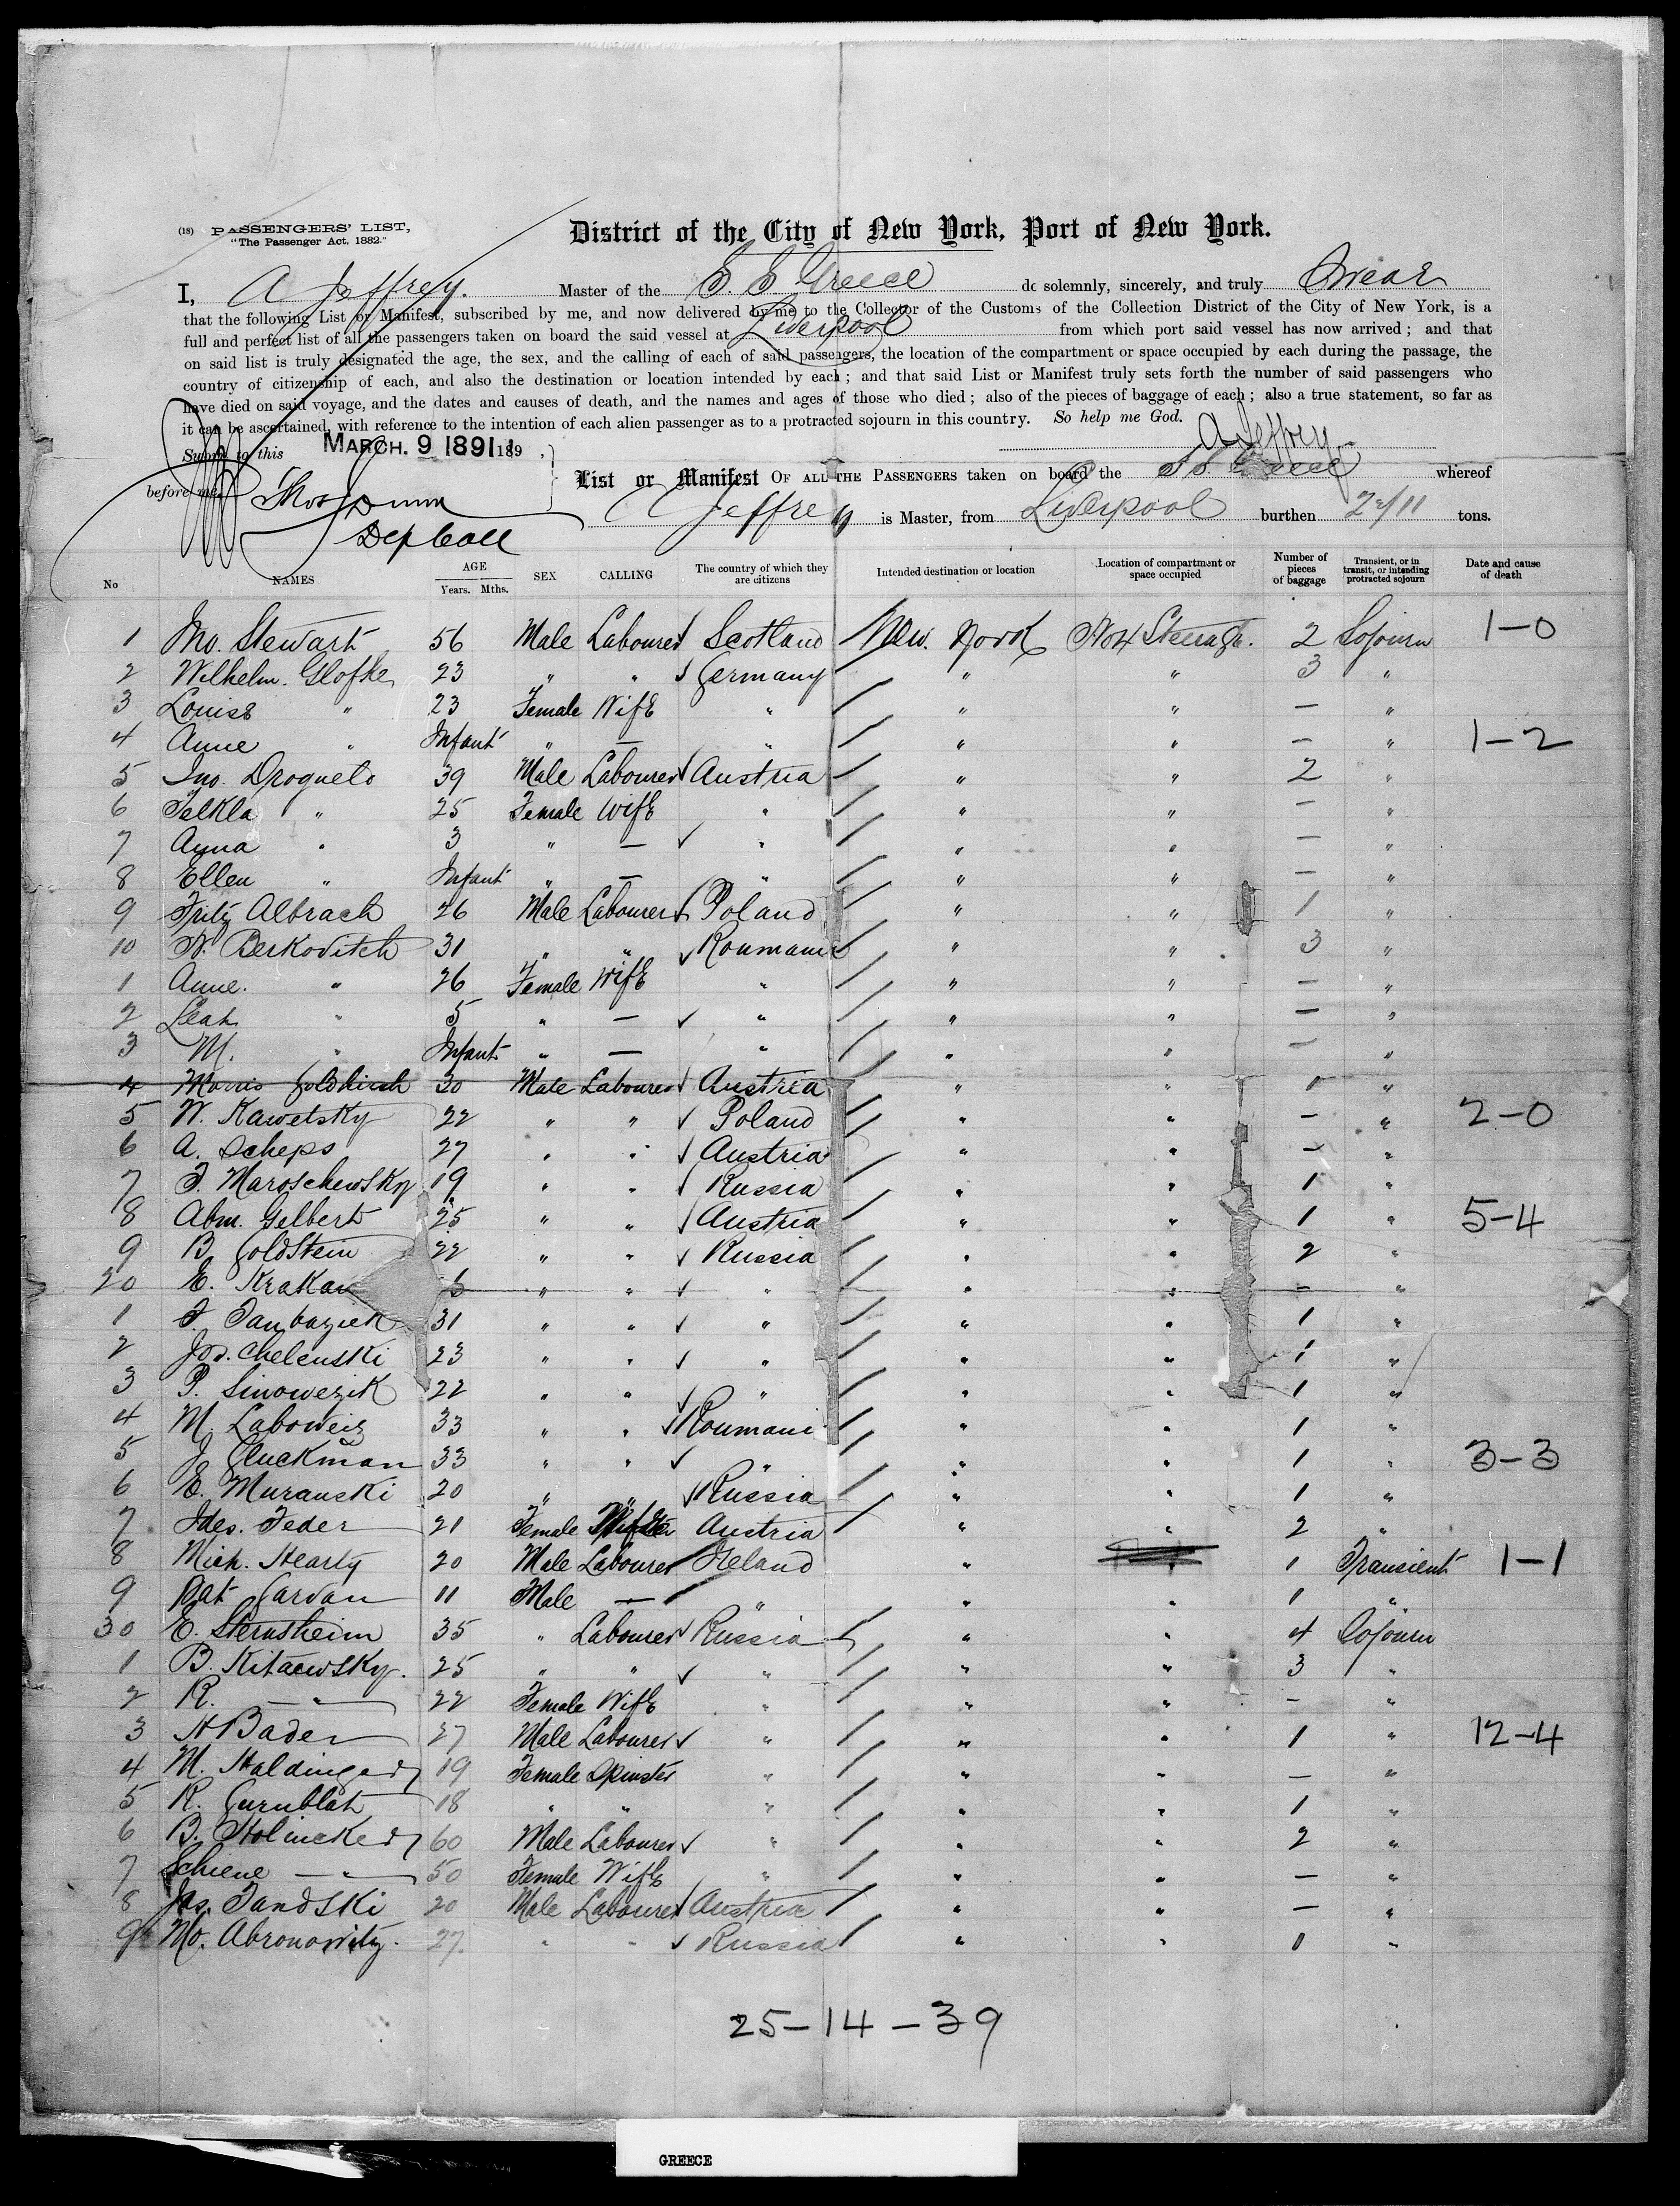 (18) PASSENGERS' LIST,
"The Passenger Act, 1882."
District of the City of New York, Port of New York.
I, A Jeffrey. Master of the S. S. Greece do solemnly, sincerely, and truly Swear
that the following List or Manifest, subscribed by me, and now delivered by me to the Collector of the Customs of the Collection District of the City of New York, is a
full and perfect list of all the passengers taken on board the said vessel at Liverpool from which port said vessel has now arrived; and that
on said list is truly designated the age, the sex, and the calling of each of said passengers, the location of the compartment or space occupied by each during the passage, the
country of citizenship of each, and also the destination or location intended by each; and that said List or Manifest truly sets forth the number of said passengers who
have died on said voyage, and the dates and causes of death, and the names and ages of those who died; also of the pieces of baggage of each; also a true statement, so far as
it can be ascertained, with reference to the intention of each alien passenger as to a protracted sojourn in this country. So help me God.
A Jeffrey
Sworn to this MARCH. 9 1891 189
before me Thos Dunn
Dep Coll
List or Manifest OF ALL THE PASSENGERS taken on board the SS Greece whereof
A Jeffrey is Master, from Liverpool burthen tons.
No NAMES AGE Years. Mths. SEX CALLING The country of which they are citizens Intended destination or location Location of compartment or space occupied Number of pieces of baggage Transient, or in transit, or intending protracted sojourn Date and cause of death
1 Jno. Stewart 56 Male Labourer Scotland New York No 4 Steerage. 2 Sojourn 1-0
2 Wilhelm. Glofke 23 " " Germany " " 3 "
3 Louise " 23 Female Wife " " " — "
4 Anne " Infant " — " " " — " 1-2
5 Jno. Droguelo 39 Male Labourer Austria " " 2 "
6 Telkla " 25 Female Wife " " " — "
7 Anna " 3 " — " " " — "
8 Ellen " Infant " — " " " — "
9 Fritz Albrach 46 Male Labourer Poland " " 1 "
10 N. Berkovitch 31 " " Roumani " " 3 "
1 Anne. " 26 Female Wife " " " — "
2 Leah " 5 " — " " " — "
3 M. " Infant " — " " " — "
4 Morris Goldhirsh 30 Male Labourer Austria " " 1 "
5 W. Kawetsky 22 " " Poland " " — " 2-0
6 A. Scheps 27 " " Austria " " — "
7 F. Maroschewsky 19 " " Russia " " 1 "
8 Abm. Gelbert 25 " " Austria " " 1 " 5-4
9 B. Goldstein 22 " " Russia " " 2 "
20 E. Krakau " " " " " — "
1 F. Taubaziek 31 " " " " " 1 "
2 Jos. Chelenski 23 " " " " " 1 "
3 P. Sinowezik 22 " " " " " 1 "
4 M. Laboweiz 33 " " Roumani " " 1 "
5 J. Gluckman 33 " " " " " 1 " 3-3
6 E. Muranski 20 " " Russia " " 1 "
7 Ides. Feder 21 Female Austria " " 2 "
8 Mich. Hearty 20 Male Labourer Ireland " " 1 Transient 1-1
9 Pat Garvan 11 Male — " " " 1 "
30 E. Sternsheim 35 " Labourer Russia " " 4 Sojourn
1 B. Kitaewsky. 25 " " " " " 3 "
2 R. — " — 22 Female Wife " " " — "
3 H Bader 27 Male Labourer " " " 1 " 12-4
4 M. Haldinger 19 Female Spinster " " " — "
5 R. Gurnblat 18 " " " " " 1 "
6 B. Holincker 60 Male Labourer " " " 2 "
7 Schiene — " — 50 Female Wife " " " — "
8 Jos. Tandski 20 Male Labourer Austria " " — "
9 Mo. Abronowitz. 27. " " Russia " " 1 "
25-14-39
GREECE